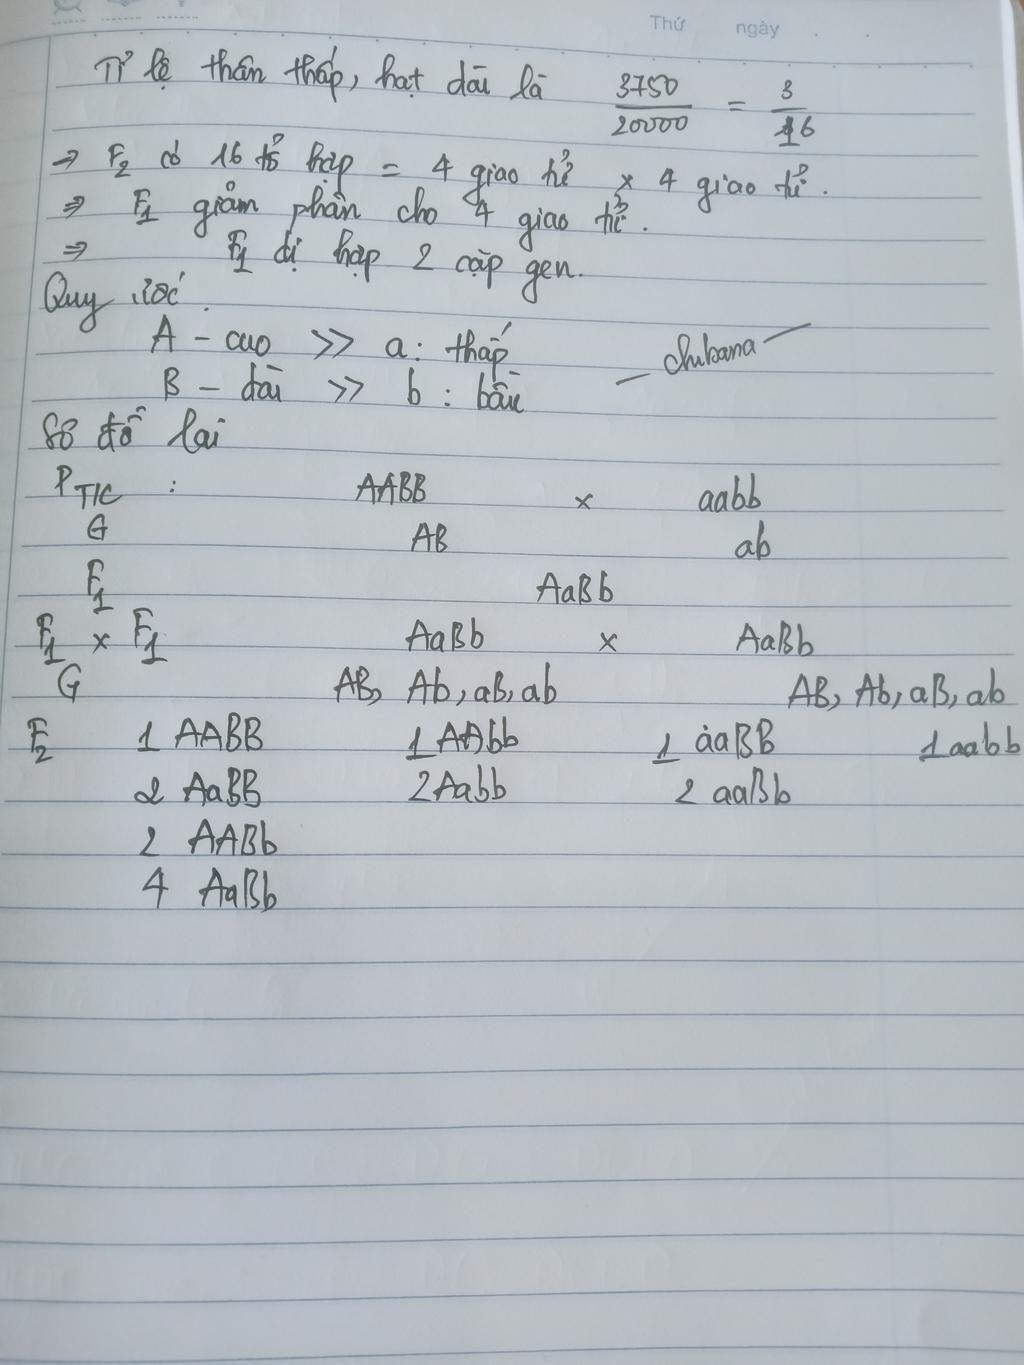 Thứ ngày . .
Tỉ lệ thân thấp, hạt dài là 3750/20000 = 3/16
=> F2 có 16 tổ hợp = 4 giao tử x 4 giao tử.
=> F1 giảm phân cho 4 giao tử.
=> F1 dị hợp 2 cặp gen.
Quy ước.
A - cao >> a: thấp
B - dài >> b: bầu
— chibana —
Sơ đồ lai
PT/C : AABB x aabb
G AB ab
F1 AaBb
F1 x F1 AaBb x AaBb
G AB, Ab, aB, ab AB, Ab, aB, ab
F2 1 AABB 1 AAbb 1 aaBB 1 aabb
2 AaBB 2 Aabb 2 aaBb
2 AABb
4 AaBb